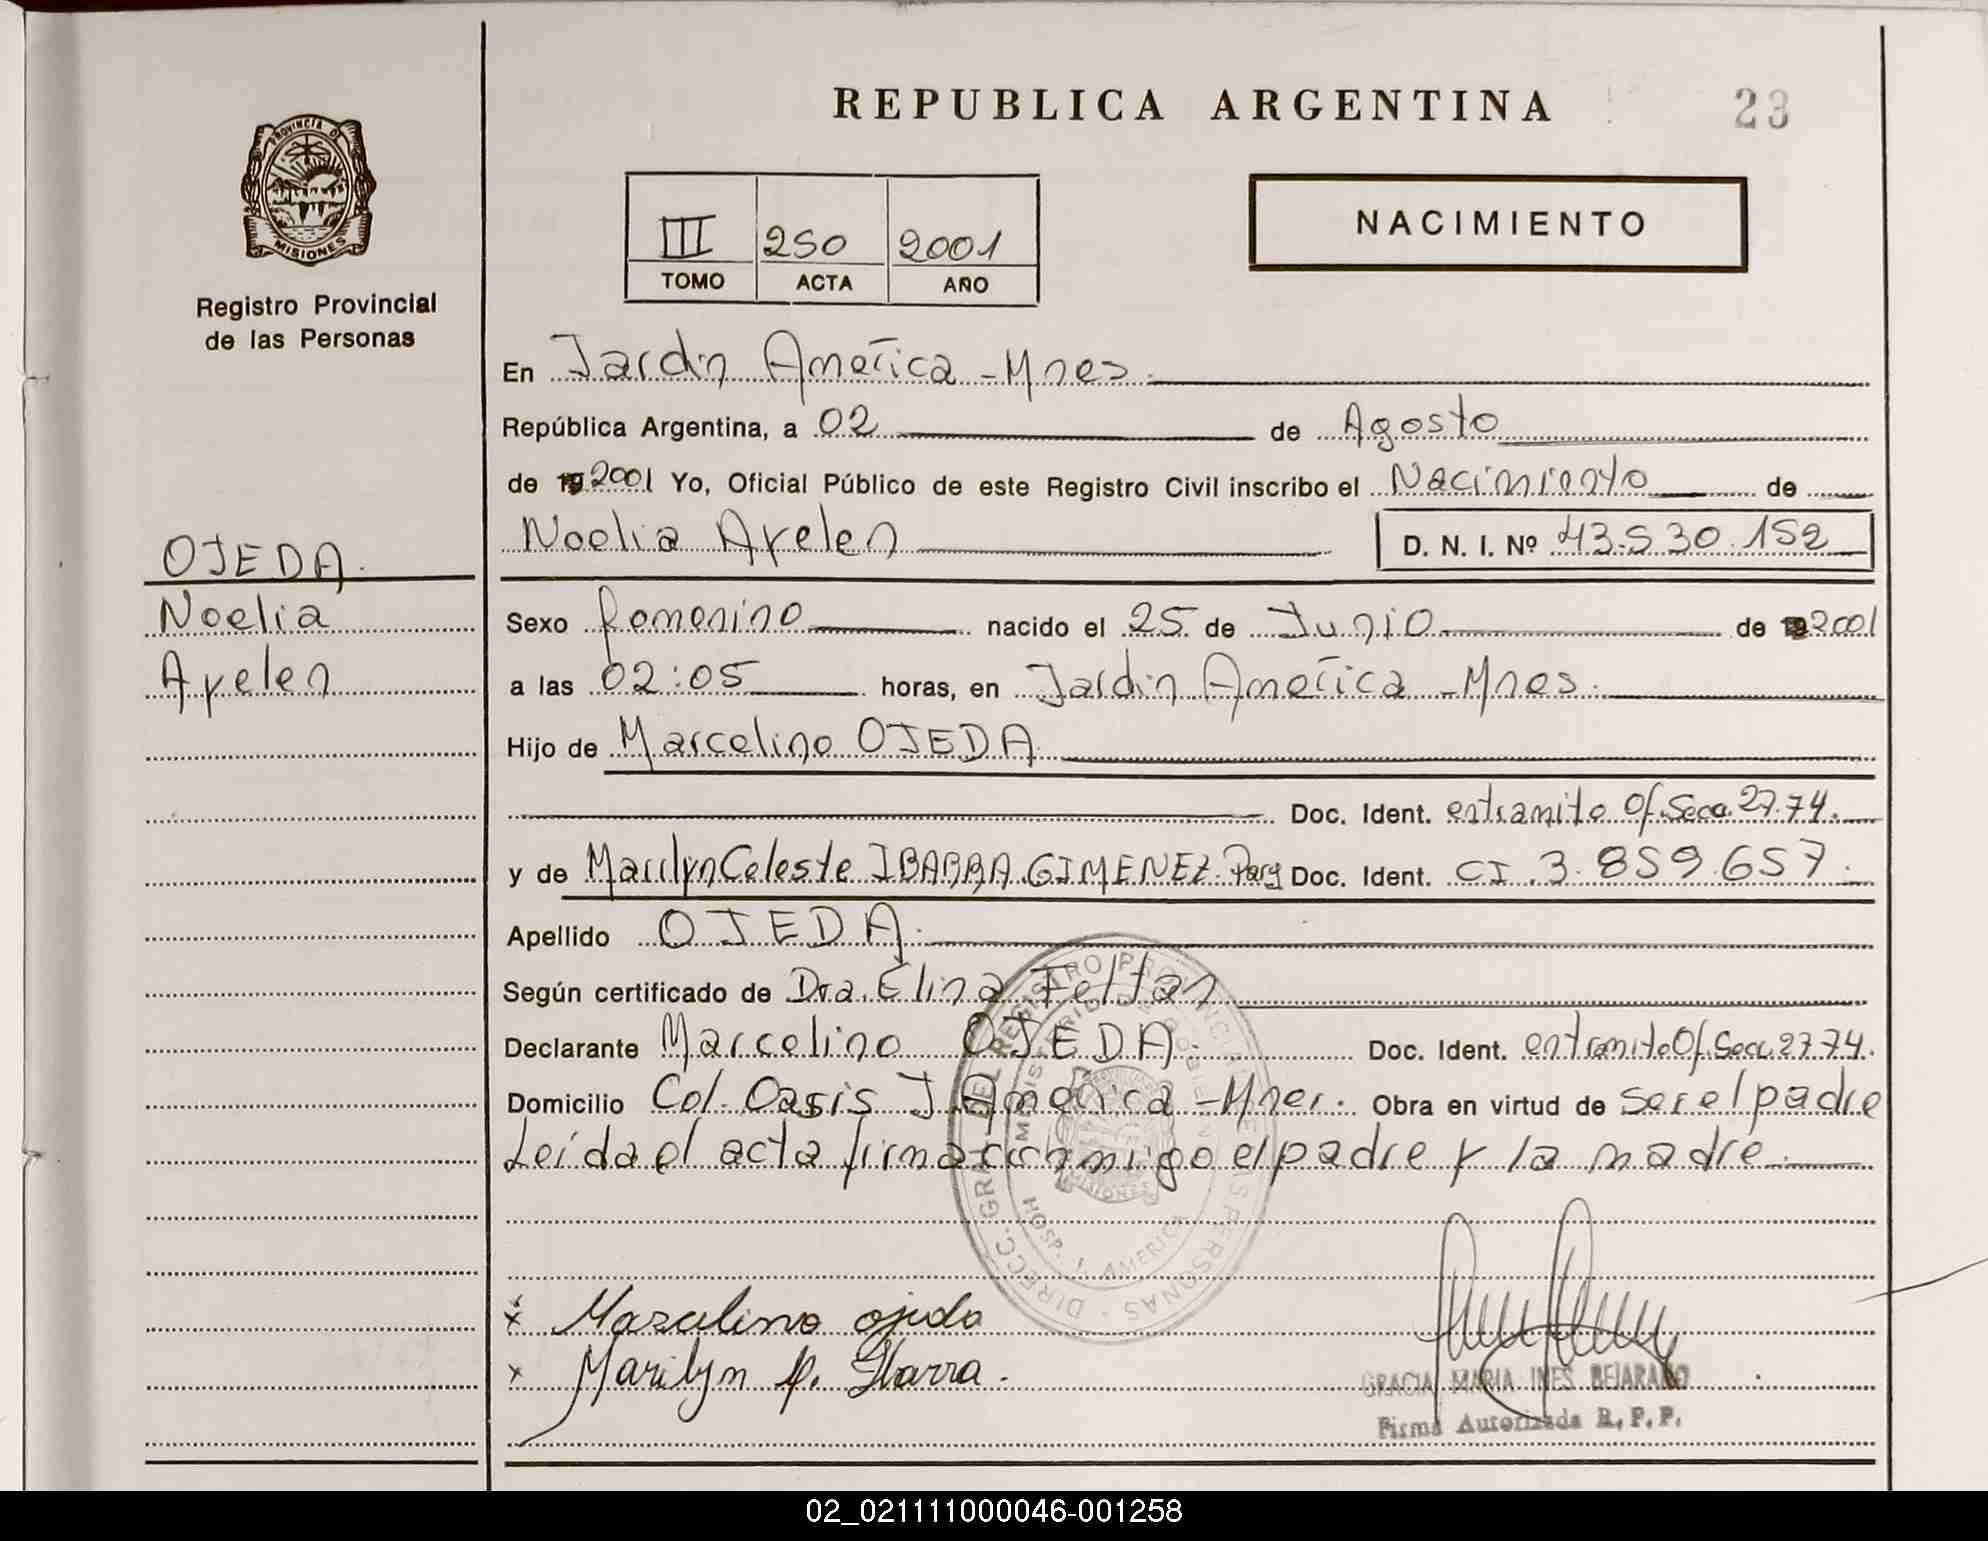 REPUBLICA ARGENTINA
23
PROVINCIA DE
MISIONES
Registro Provincial
de las Personas
III 250 2001
TOMO ACTA AÑO
NACIMIENTO
En Jardin America - Mnes.
República Argentina, a 02 de Agosto
de 19 2001 Yo, Oficial Público de este Registro Civil inscribo el Nacimiento de
Noelia Ayelen D. N. I. Nº 43.530.152
OJEDA.
Noelia
Ayelen
Sexo femenino nacido el 25 de Junio de 19 2001
a las 02:05 horas, en Jardin America - Mnes.
Hijo de Marcelino OJEDA
Doc. Ident. entramite Of. Secc. 2774.
y de Marilyn Celeste IBARRA GIMENEZ. Parg Doc. Ident. CI. 3.859.657.
Apellido OJEDA.
Según certificado de Dra. Elina
Declarante Marcelino OJEDA. Doc. Ident. entramite Of. Secc. 2774.
Domicilio Col. Oasis J. America - Mnes. Obra en virtud de ser el padre
Leída el acta firma conmigo el padre y la madre.
DIRECC. GRAL. DEL REGISTRO PROVINCIAL DE LAS PERSONAS
MINISTERIO DE GOBIERNO
HOSP. J. AMERICA
x Marcelino ojeda
x Marilyn C. Ibarra.
GRACIA MARIA INES BEJARANO
Firma Autorizada R. P. P.
02_021111000046-001258